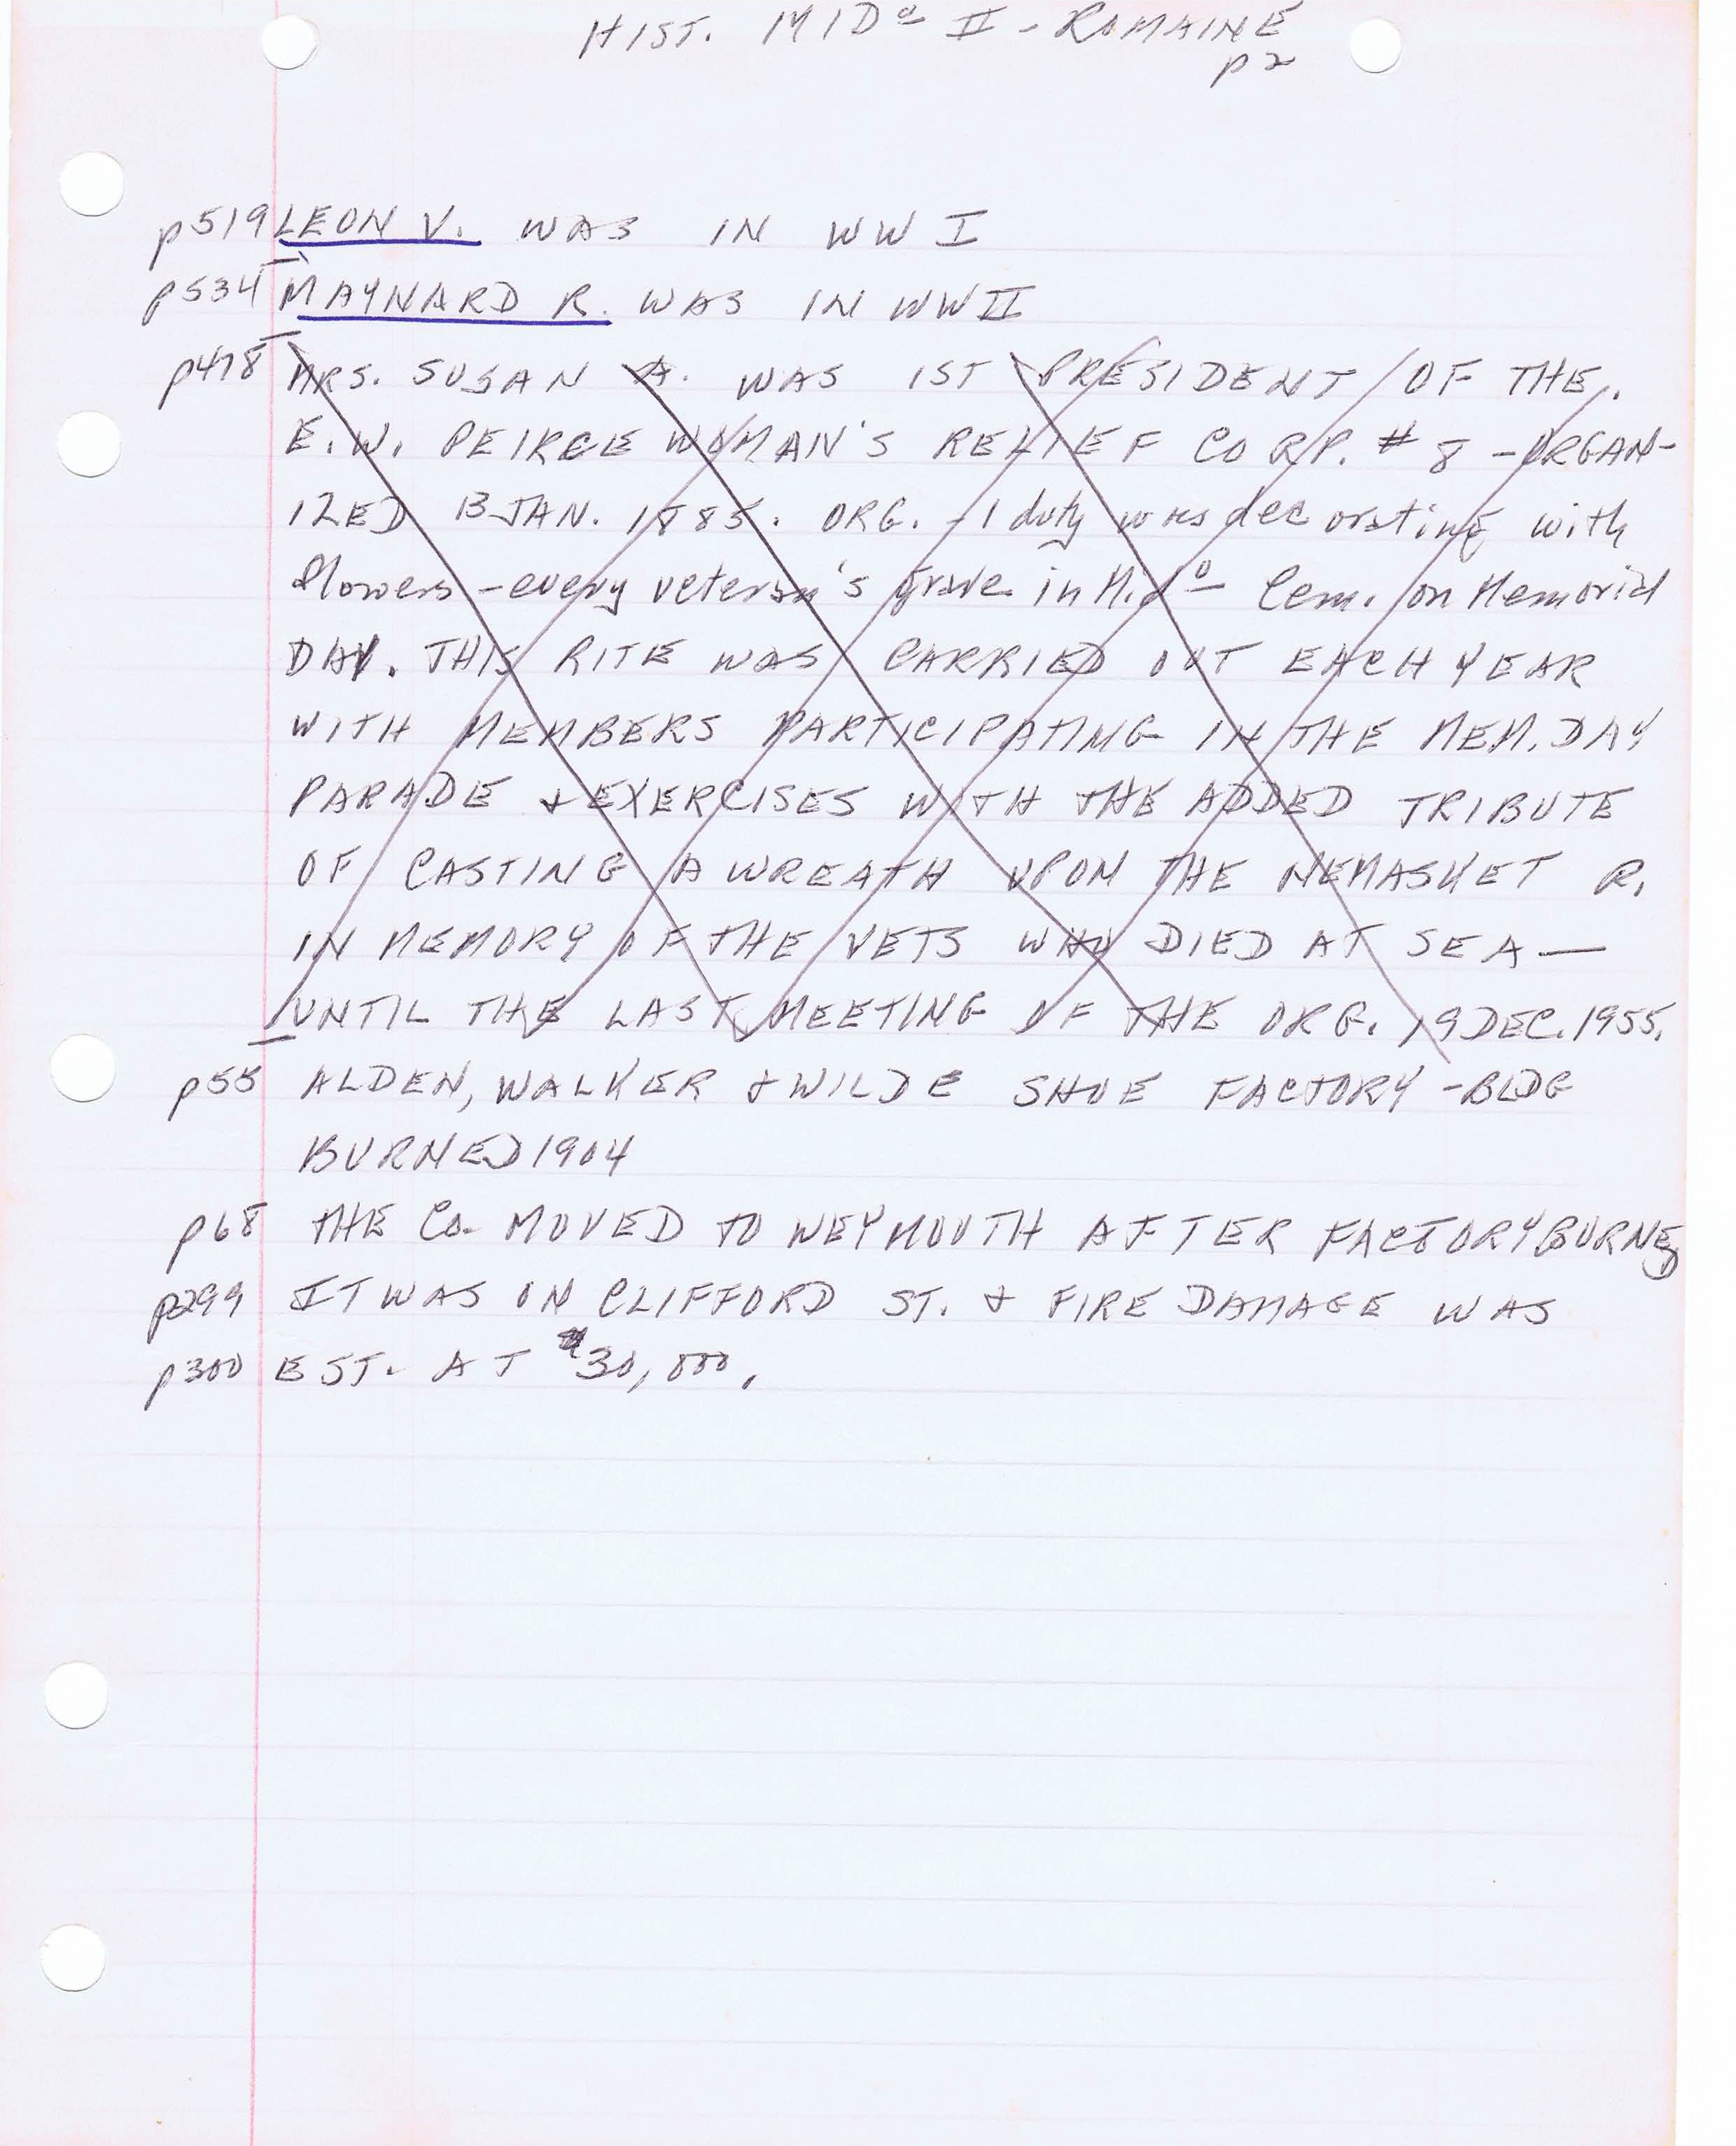 HIST. MIDº II - ROMAINE
p 2
p519 LEON V. WAS IN WW I
p534 MAYNARD R. WAS IN WW II
p478 MRS. SUSAN A. WAS 1ST PRESIDENT OF THE
E. W. PEIRCE WOMAN'S RELIEF CORP. # 8 - ORGAN-
IZED 13 JAN. 1885. ORG. - 1 duty was decorating with
flowers - every veteran's grave in Midº Cem. on Memorial
DAY. THIS RITE WAS CARRIED OUT EACH YEAR
WITH MEMBERS PARTICIPATING IN THE MEM. DAY
PARADE & EXERCISES WITH THE ADDED TRIBUTE
OF CASTING A WREATH UPON THE NEMASKET R.
IN MEMORY OF THE VETS WHO DIED AT SEA —
UNTIL THE LAST MEETING OF THE ORG. 19 DEC. 1955.
p55 ALDEN, WALKER & WILDE SHOE FACTORY - BLDG
BURNED 1904
p68 THE CO. MOVED TO WEYMOUTH AFTER FACTORY BURNED
p299 IT WAS ON CLIFFORD ST. & FIRE DAMAGE WAS
p300 EST. AT $30,000.